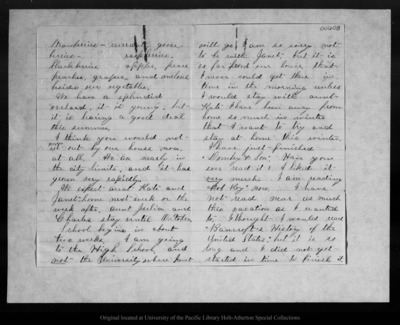 00408
Strawberries - currants, goose-
berries - raspberries,
Blackberries apples, pears
peaches, grapes and melons
besides our vegetables.
We have a splendid
orchard, it is young, but
it is bearing a good deal
this summer.
I think you would not
out by our house now,
at all. We are nearly in
the city limits, and it has
grown very rapidly.
We expect aunt Kate and
Janet home next week or the
week after, aunt Julia and
Charlie stay until October.
School begins in about
two weeks. I am going
to the High School, and
not the University where Janet
will go, I am so sorry not
to be with Janet, but it is
so far from our house that
I never could get there in
time in the morning unless
I would stay with aunt
Kate. I have been away from
home so much in winter
that I want to try and
stay at home this winter.
I have just finished
"Dombey & Son." Have you
ever read it? I liked it
very much. I am reading
"Rob Roy" now. I have
not read near as much
this vacation as I wanted
to. I thought I would read
"Bancroft's History of the
United States," but it is so
long and I did not get
started in time to finish it
Original located at University of the Pacific Library Holt-Atherton Special Collections